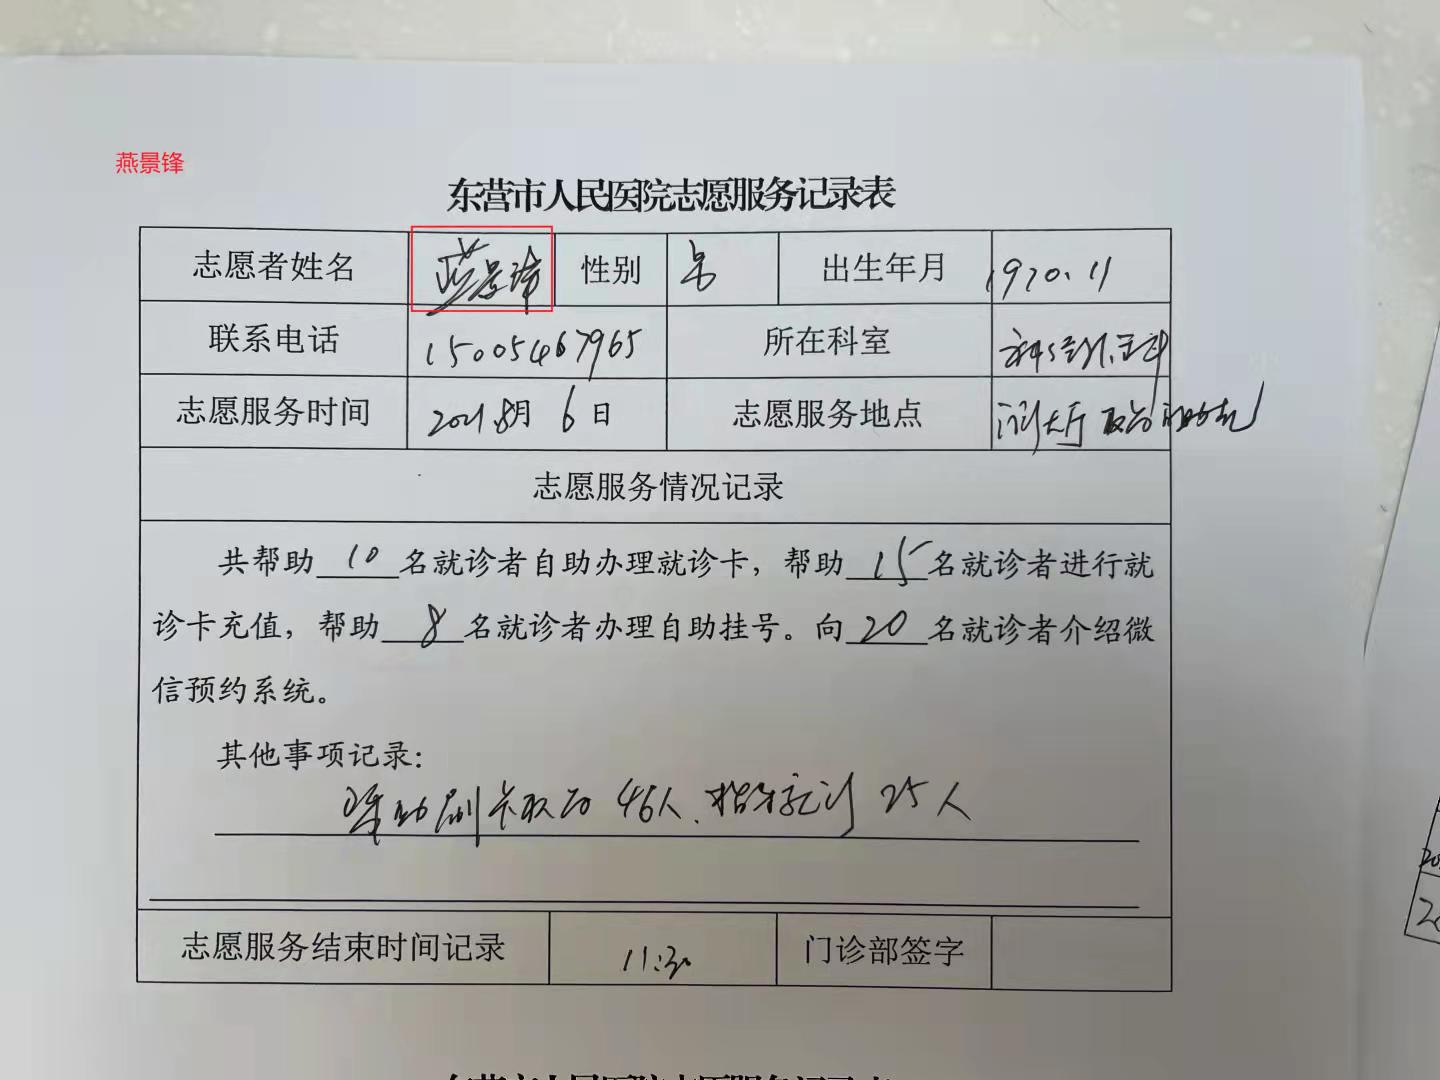 燕景锋
东营市人民医院志愿服务记录表
志愿者姓名 燕景锋 性别 男 出生年月 1970.11
联系电话 15005467965 所在科室
志愿服务时间 2021.8月 6日 志愿服务地点 门诊大厅
志愿服务情况记录
共帮助 10 名就诊者自助办理就诊卡，帮助 15 名就诊者进行就
诊卡充值，帮助 8 名就诊者办理自助挂号。向 20 名就诊者介绍微
信预约系统。
其他事项记录：
帮助刷卡取号 46人、指导就诊 25人
志愿服务结束时间记录 11:30 门诊部签字
东营市人民医院志愿服务记录表